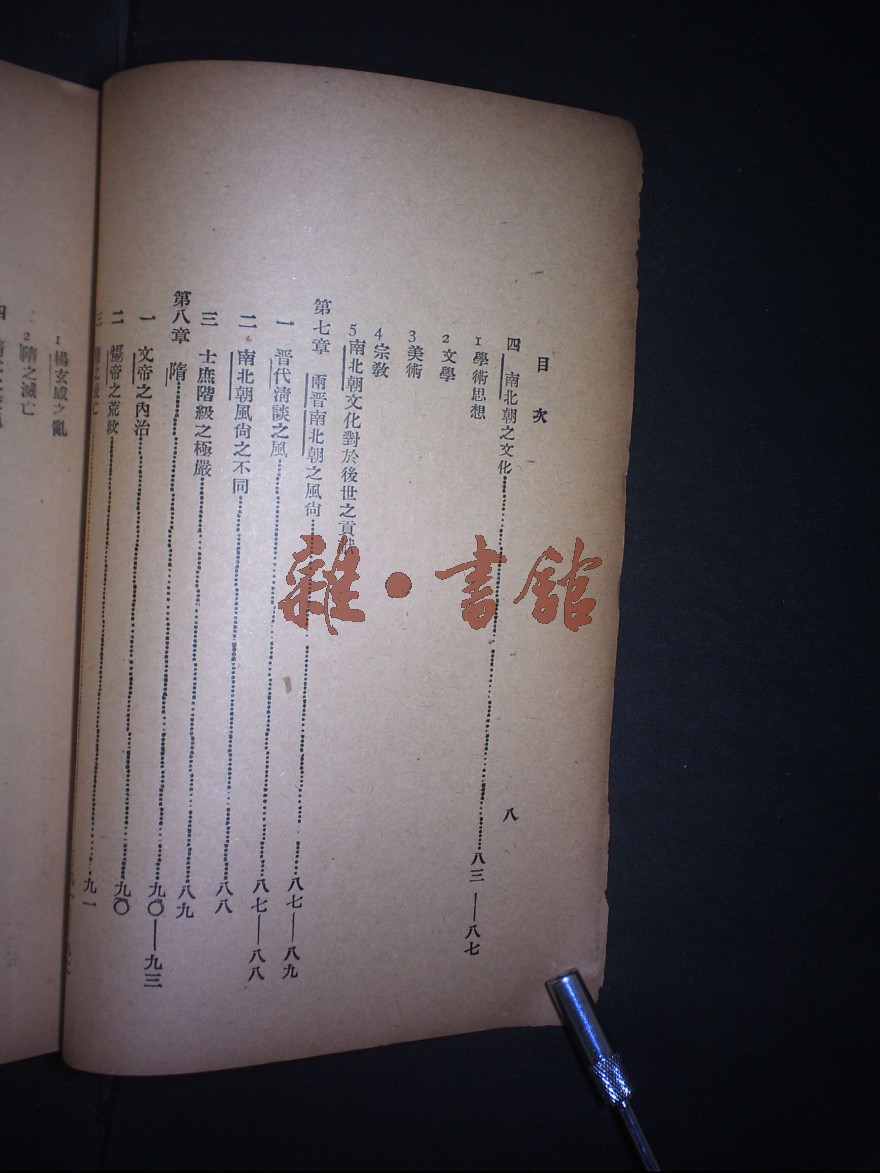 目次
八
四 南北朝之文化……八三—八七
1學術思想
2文學
3美術
4宗教
5南北朝文化對於後世之貢
第七章 兩晋南北朝之風尙……八七—八九
一 晋代淸談之風……八七—八八
二 南北朝風尙之不同……八八
三 士庶階級之極嚴……八九
第八章 隋……九〇—九三
一 文帝之內治……九〇
二 煬帝之荒政……九一
三 隋之滅亡
1楊玄感之亂
2隋之滅亡
四
雜·書館